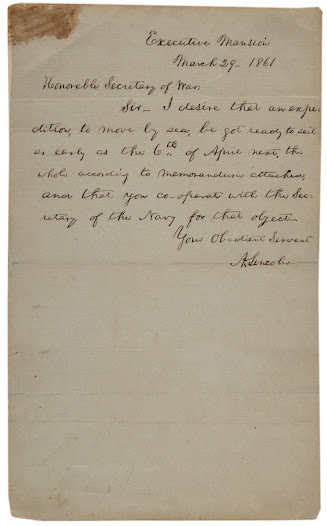 Executive Mansion
March 29- 1861
Honorable Secretary of War,
Sir- I desire that an expe-
dition, to move by sea, be got ready to sail
as early as the 6th. of April next, the
whole according to memorandum attached,
and that you co-operate with the Sec-
retary of the Navy for that object.
Your Obedient Servant
A. Lincoln